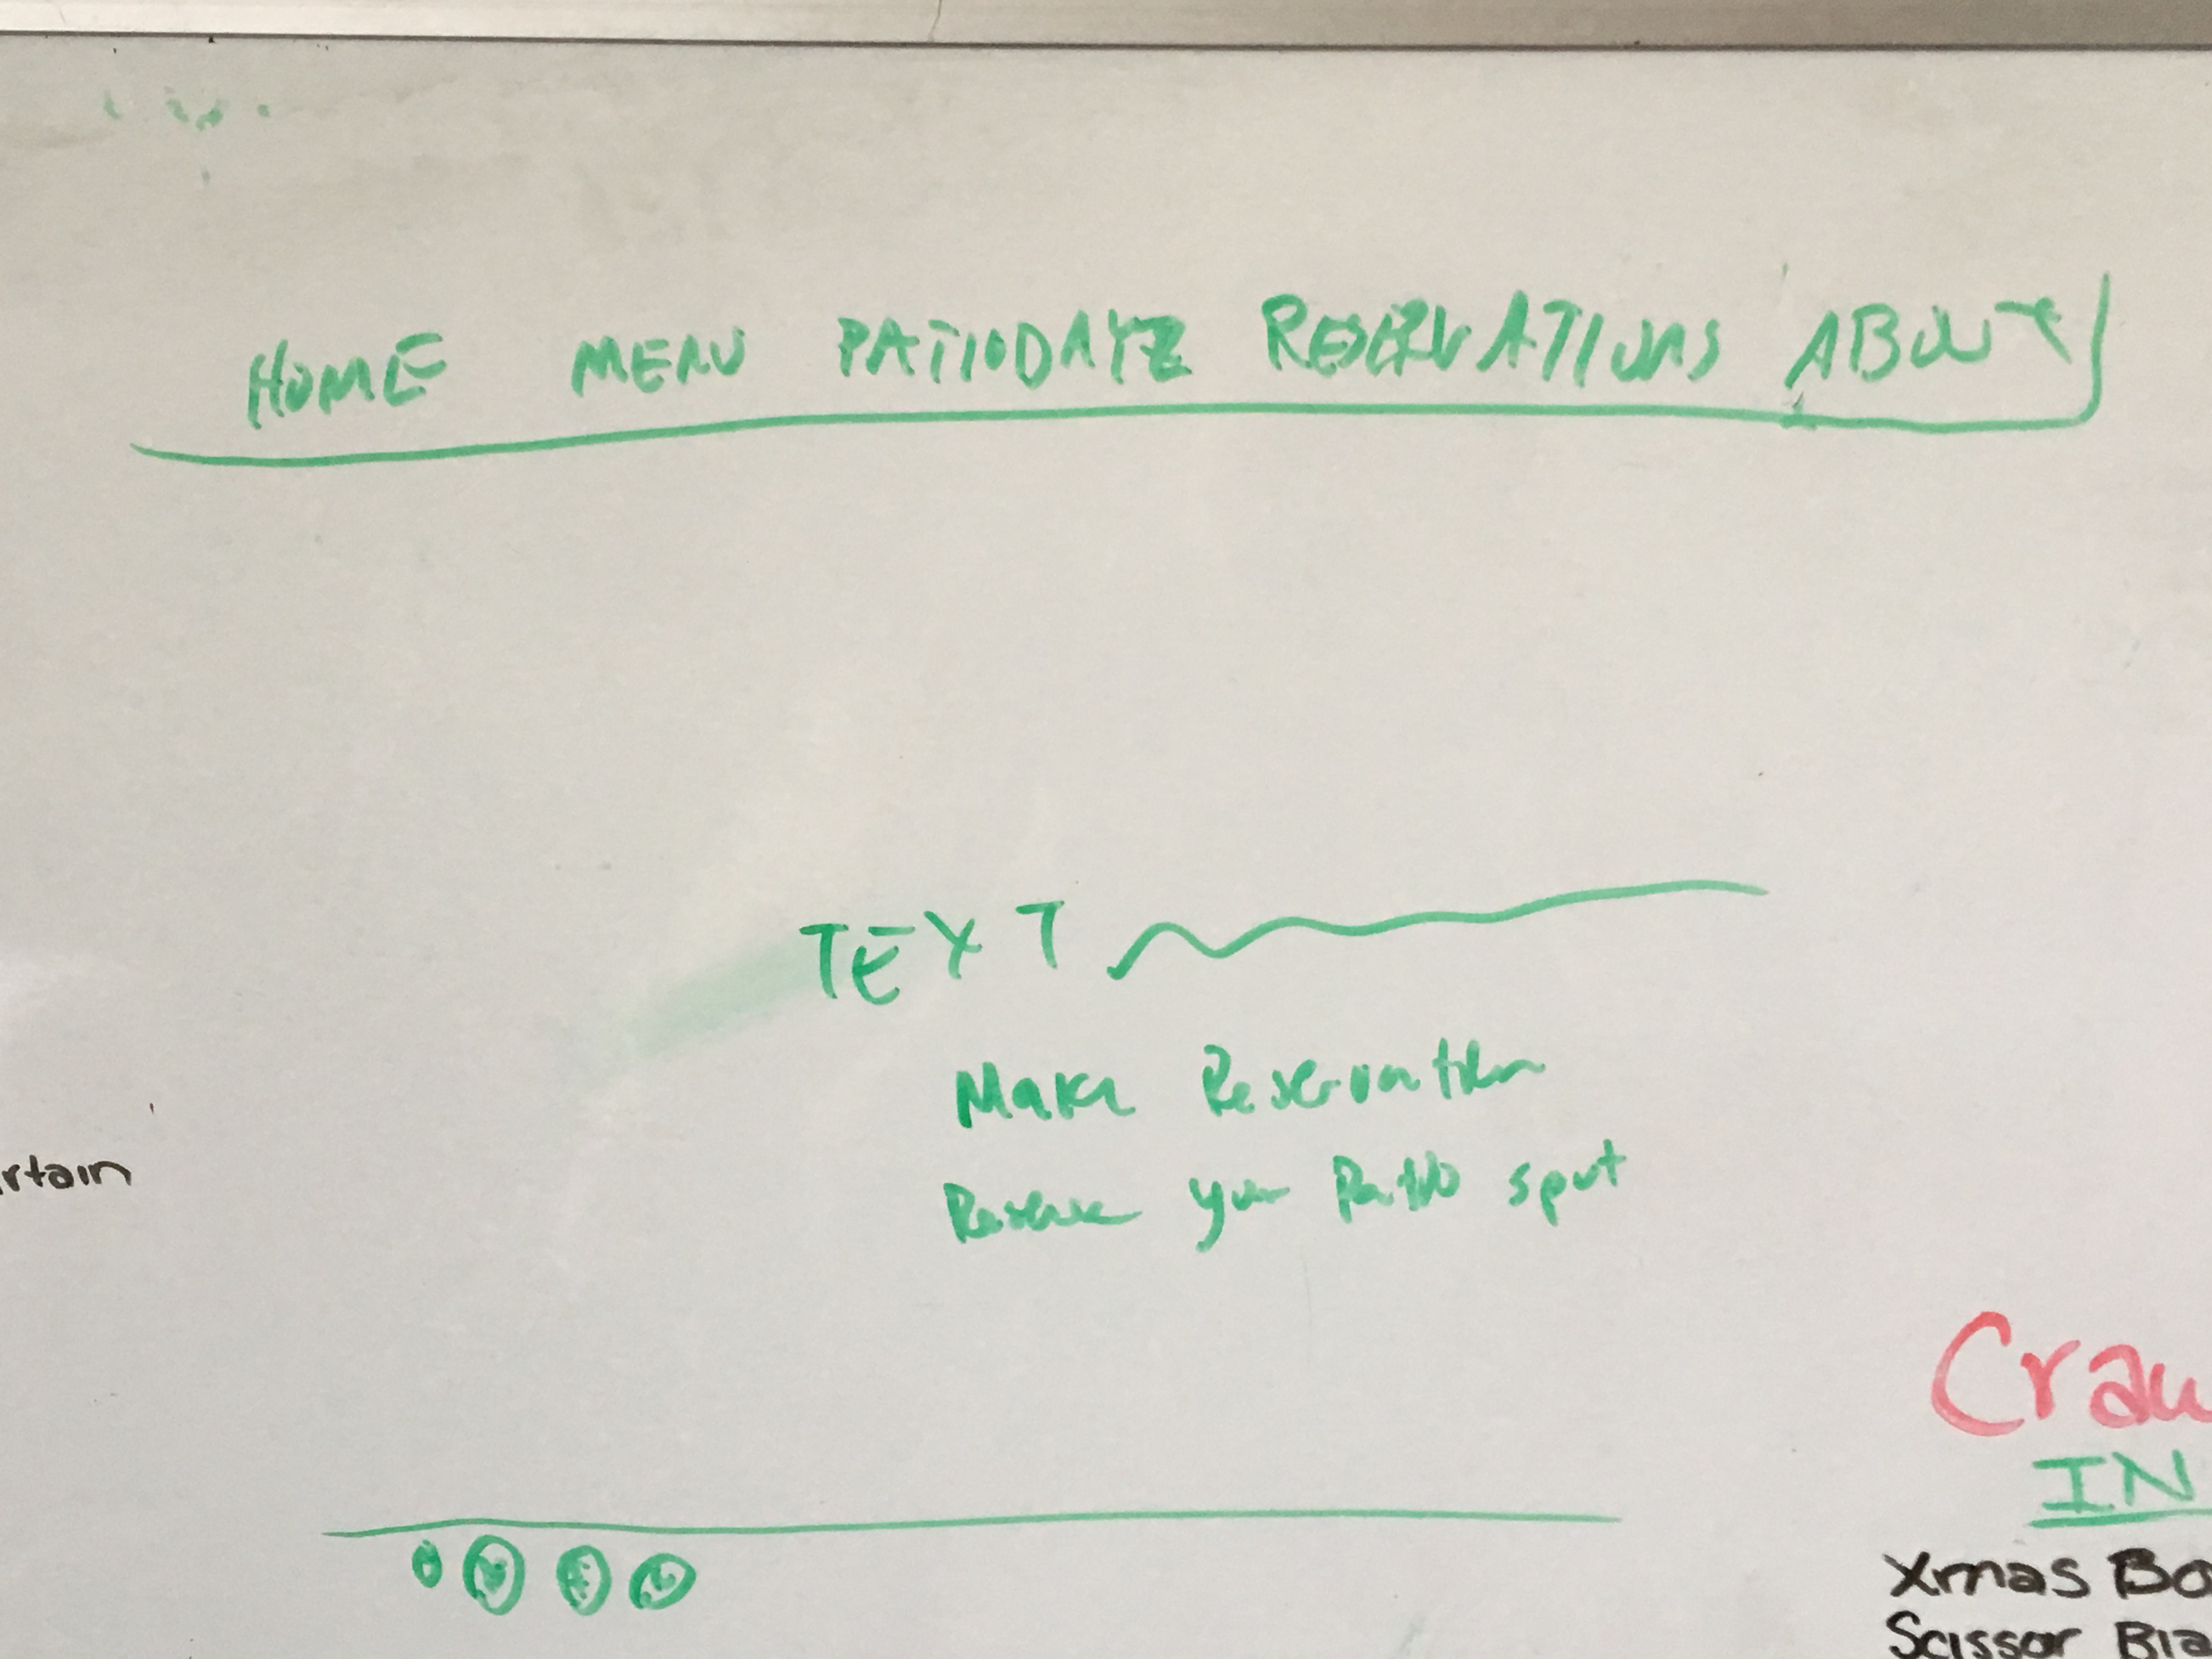 HOME MENU PATIODAYZ RESERVATIONS ABOUT
TEXT
Make Reservation
Reserve your Patio spot
rtain
Craw
IN
Xmas Bo
Scissor Bla